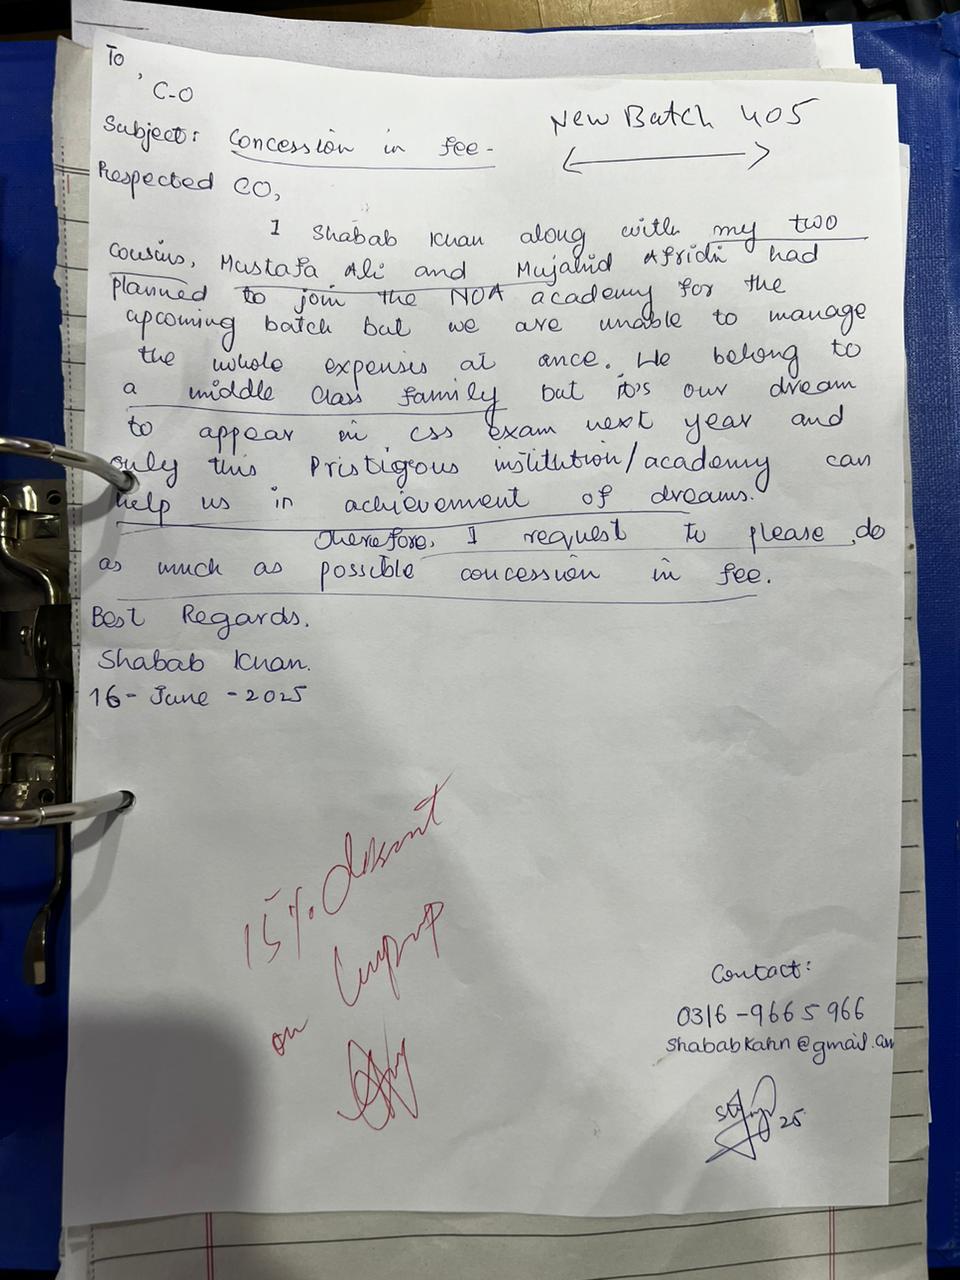 To,
C-O
New Batch 405
Subject: Concession in fee-
Respected CO,
I Shabab Khan along with my two
cousins, Mustafa Ali and Mujahid Afridi had
planned to join the NOA academy for the
upcoming batch but we are unable to manage
the whole expenses at once. We belong to
a middle class family but it's our dream
to appear in css exam next year and
only this Pristigous institution/academy can
help us in achievement of dreams.
Therefore, I request to please do
as much as possible concession in fee.
Best Regards.
Shabab Khan.
16- June -2025
15% discount
on
Contact:
0316-9665966
Shababkahn@gmail.com
25